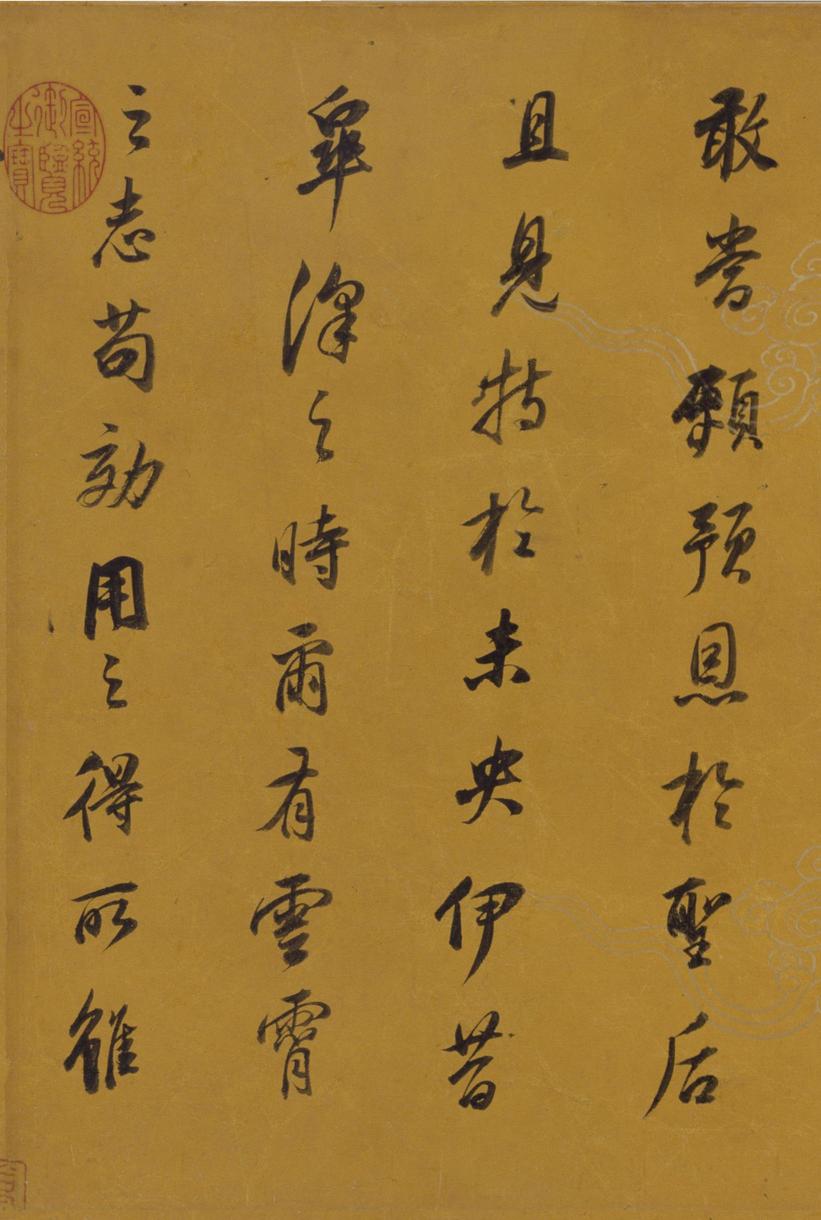 敢當顧預恩於聖后
且見特於未央伊昔
皋澤之時爾有雲霄
之志苟効用之得所雖
宣統御覽之寶